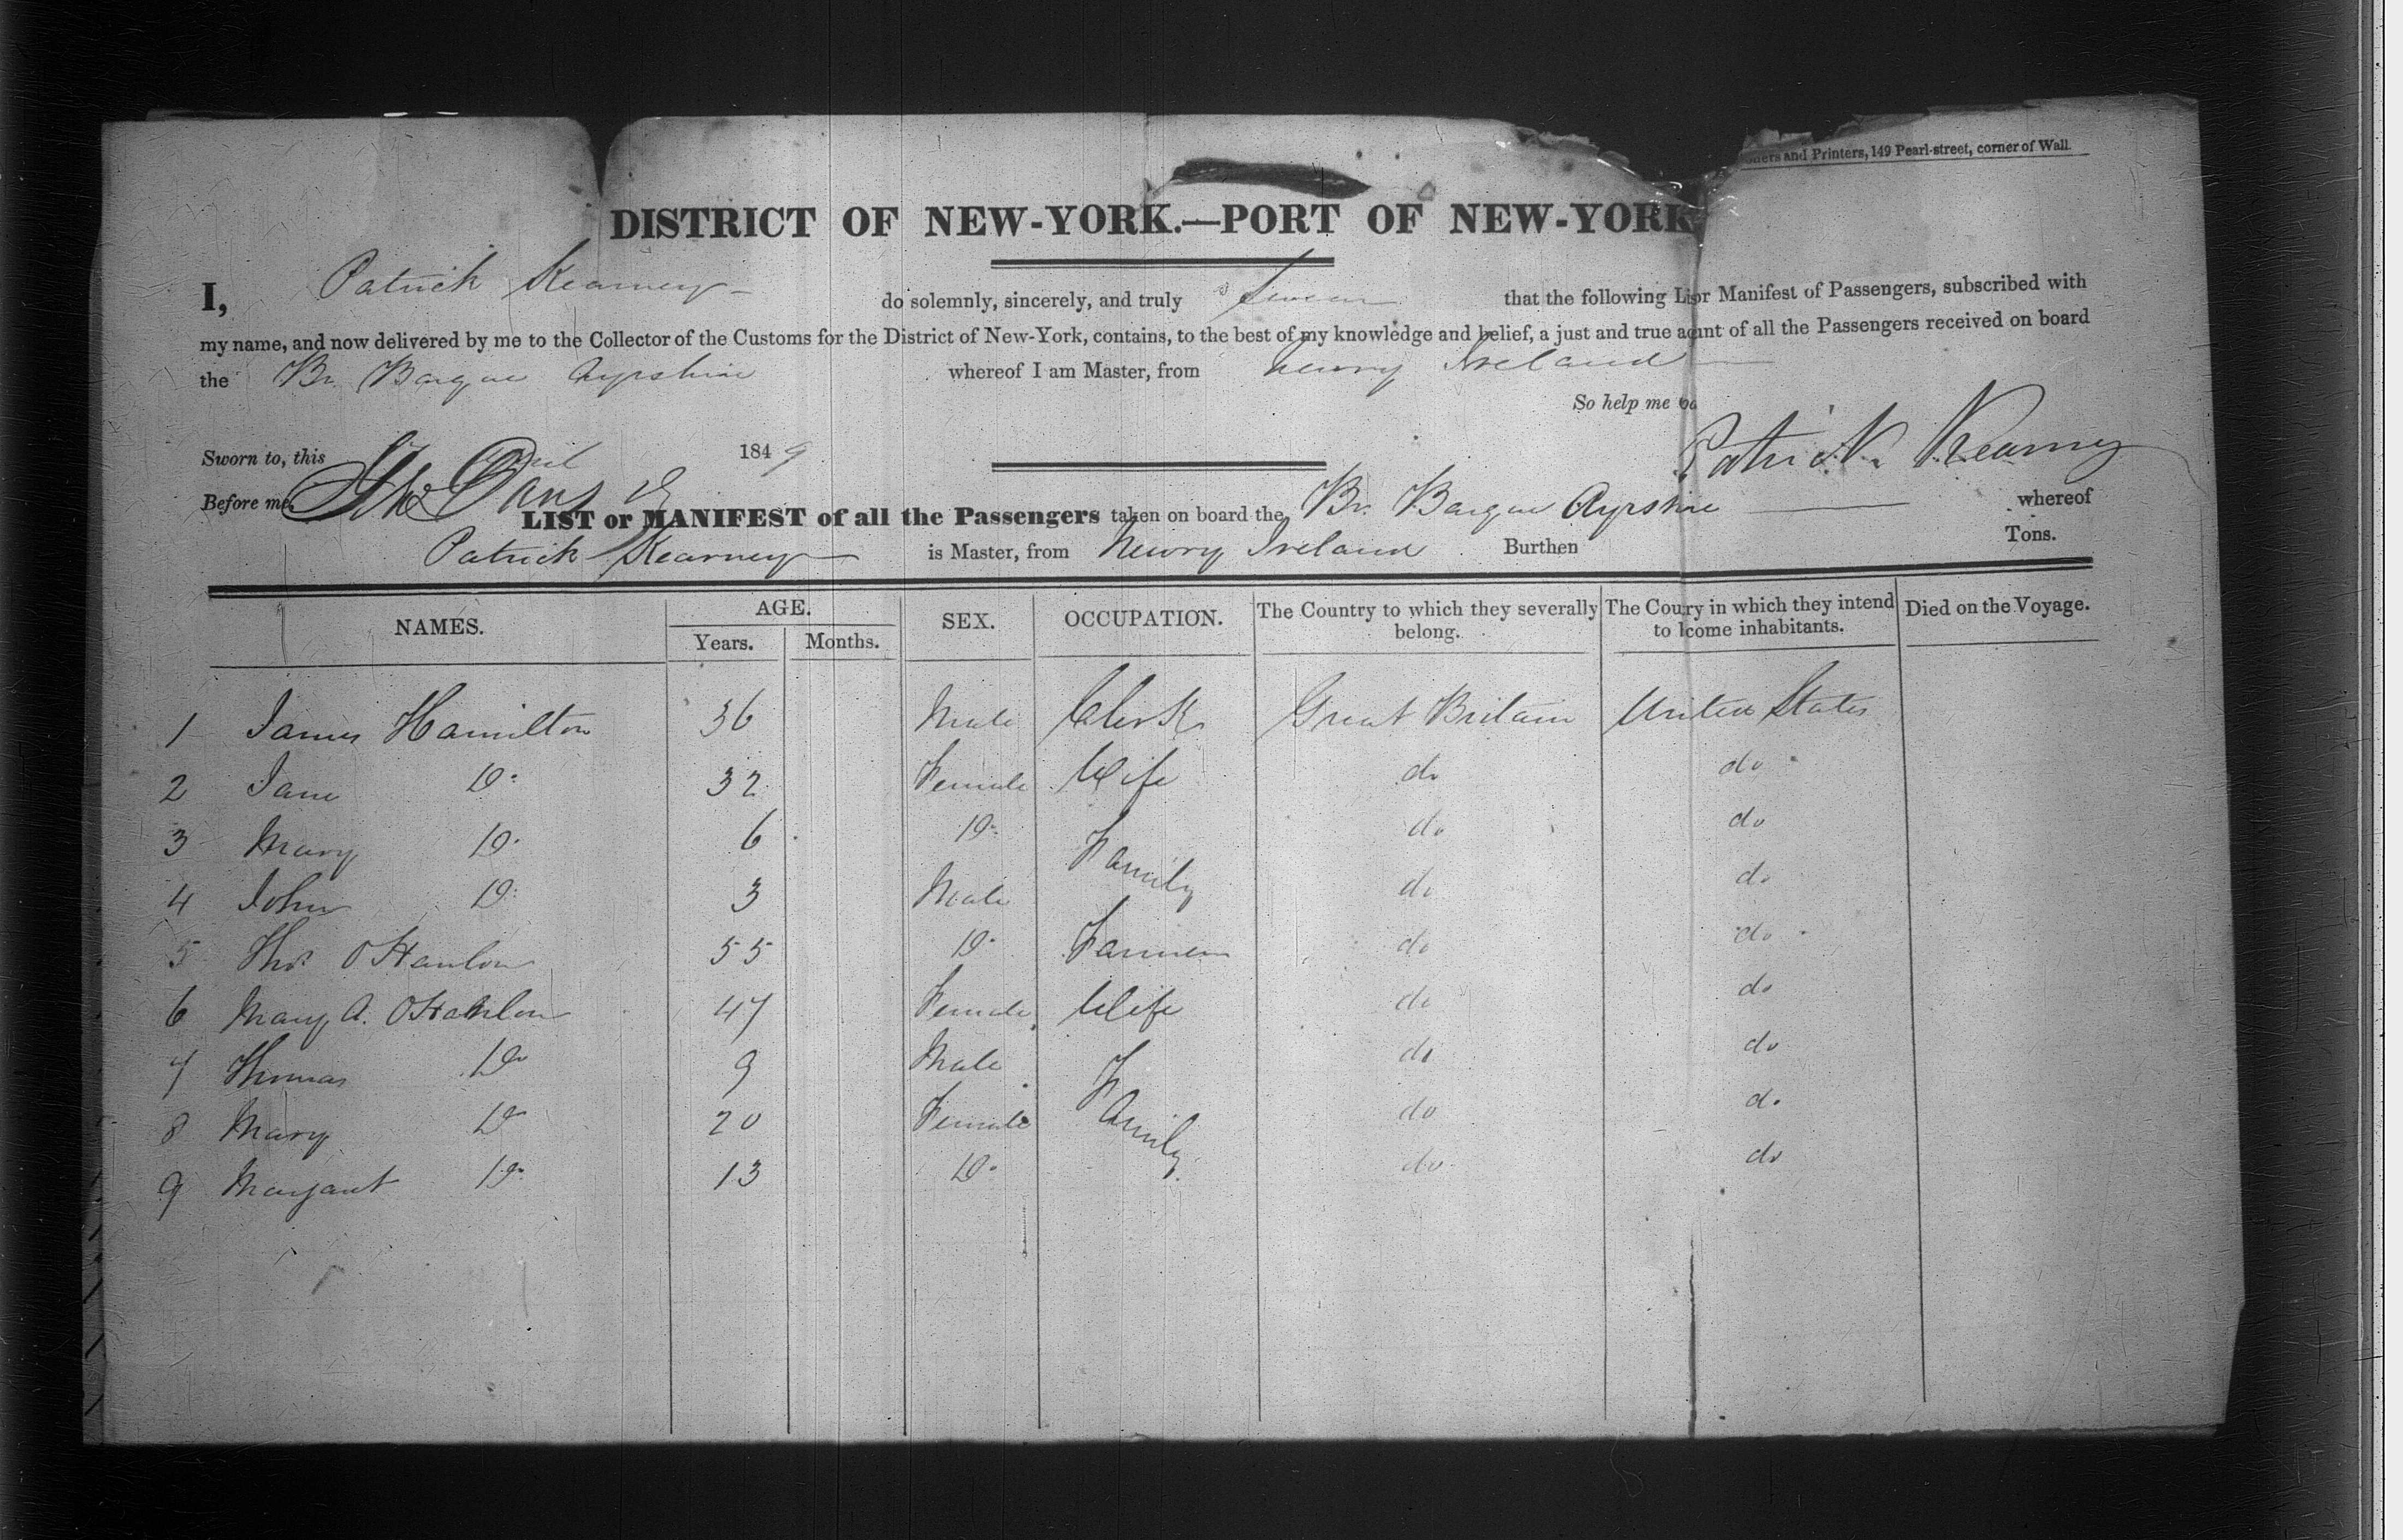 ners and Printers, 149 Pearl-street, corner of Wall.
DISTRICT OF NEW-YORK.—PORT OF NEW-YORK.
I, Patrick Kearney do solemnly, sincerely, and truly swear that the following Lior Manifest of Passengers, subscribed with
my name, and now delivered by me to the Collector of the Customs for the District of New-York, contains, to the best of my knowledge and belief, a just and true acnt of all the Passengers received on board
the Br. Barque Ayrshire whereof I am Master, from Newry Ireland
So help me
Sworn to, this April 1849 Patrick Kearney
Before me,
LIST or MANIFEST of all the Passengers taken on board the Br. Barque Ayrshire whereof
Patrick Kearney is Master, from Newry Ireland Burthen Tons.
NAMES. AGE. SEX. OCCUPATION. The Country to which they severally belong. The Coury in which they intend to lcome inhabitants. Died on the Voyage.
Years. Months.
1 James Hamilton 36 Male Clerk Great Britain United States
2 Jane Do 32 Female Wife do do
3 Mary Do 6 Do Family do do
4 John Do 3 Male do do
5 Thos O'Hanlon 55 Do Farmer do do
6 Mary A. O'Hanlon 47 Female Wife do do
7 Thomas Do 9 Male Family do do
8 Mary Do 20 Female do do
9 Margaret Do 13 Do do do